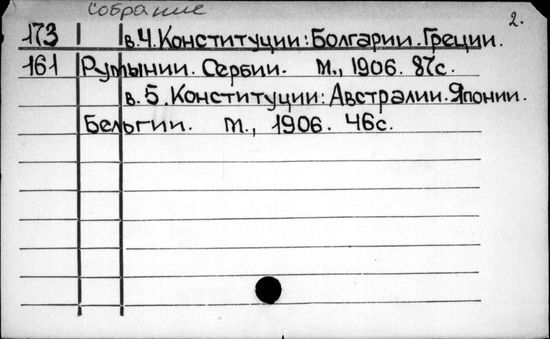 собрание
2.
173 в.4. Конституции: Болгарии. Греции.
161 Румынии. Сербии. М., 1906. 87с.
в. 5. Конституции: Австралии. Японии.
Бельгии. М., 1906. 46с.